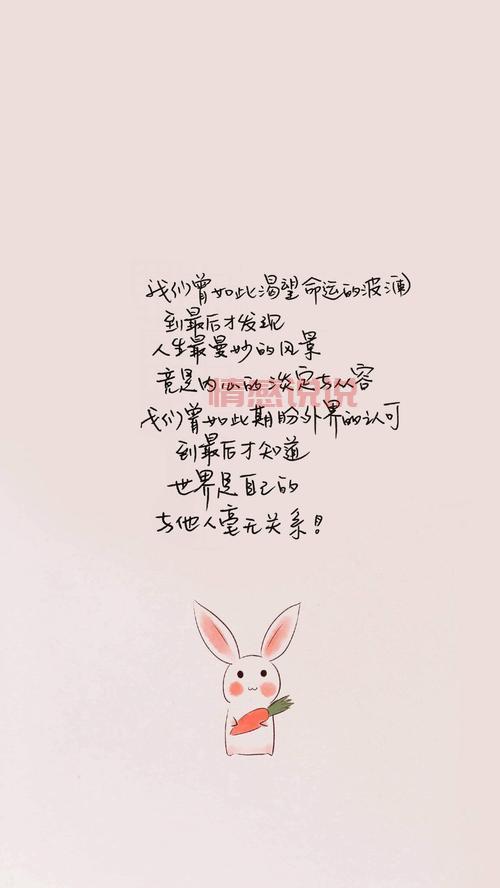 我们曾如此渴望命运的波澜
到最后才发现
人生最曼妙的风景
竟是内心的淡定与从容
情感说说
我们曾如此期盼外界的认可
到最后才知道
世界是自己的
与他人毫无关系!